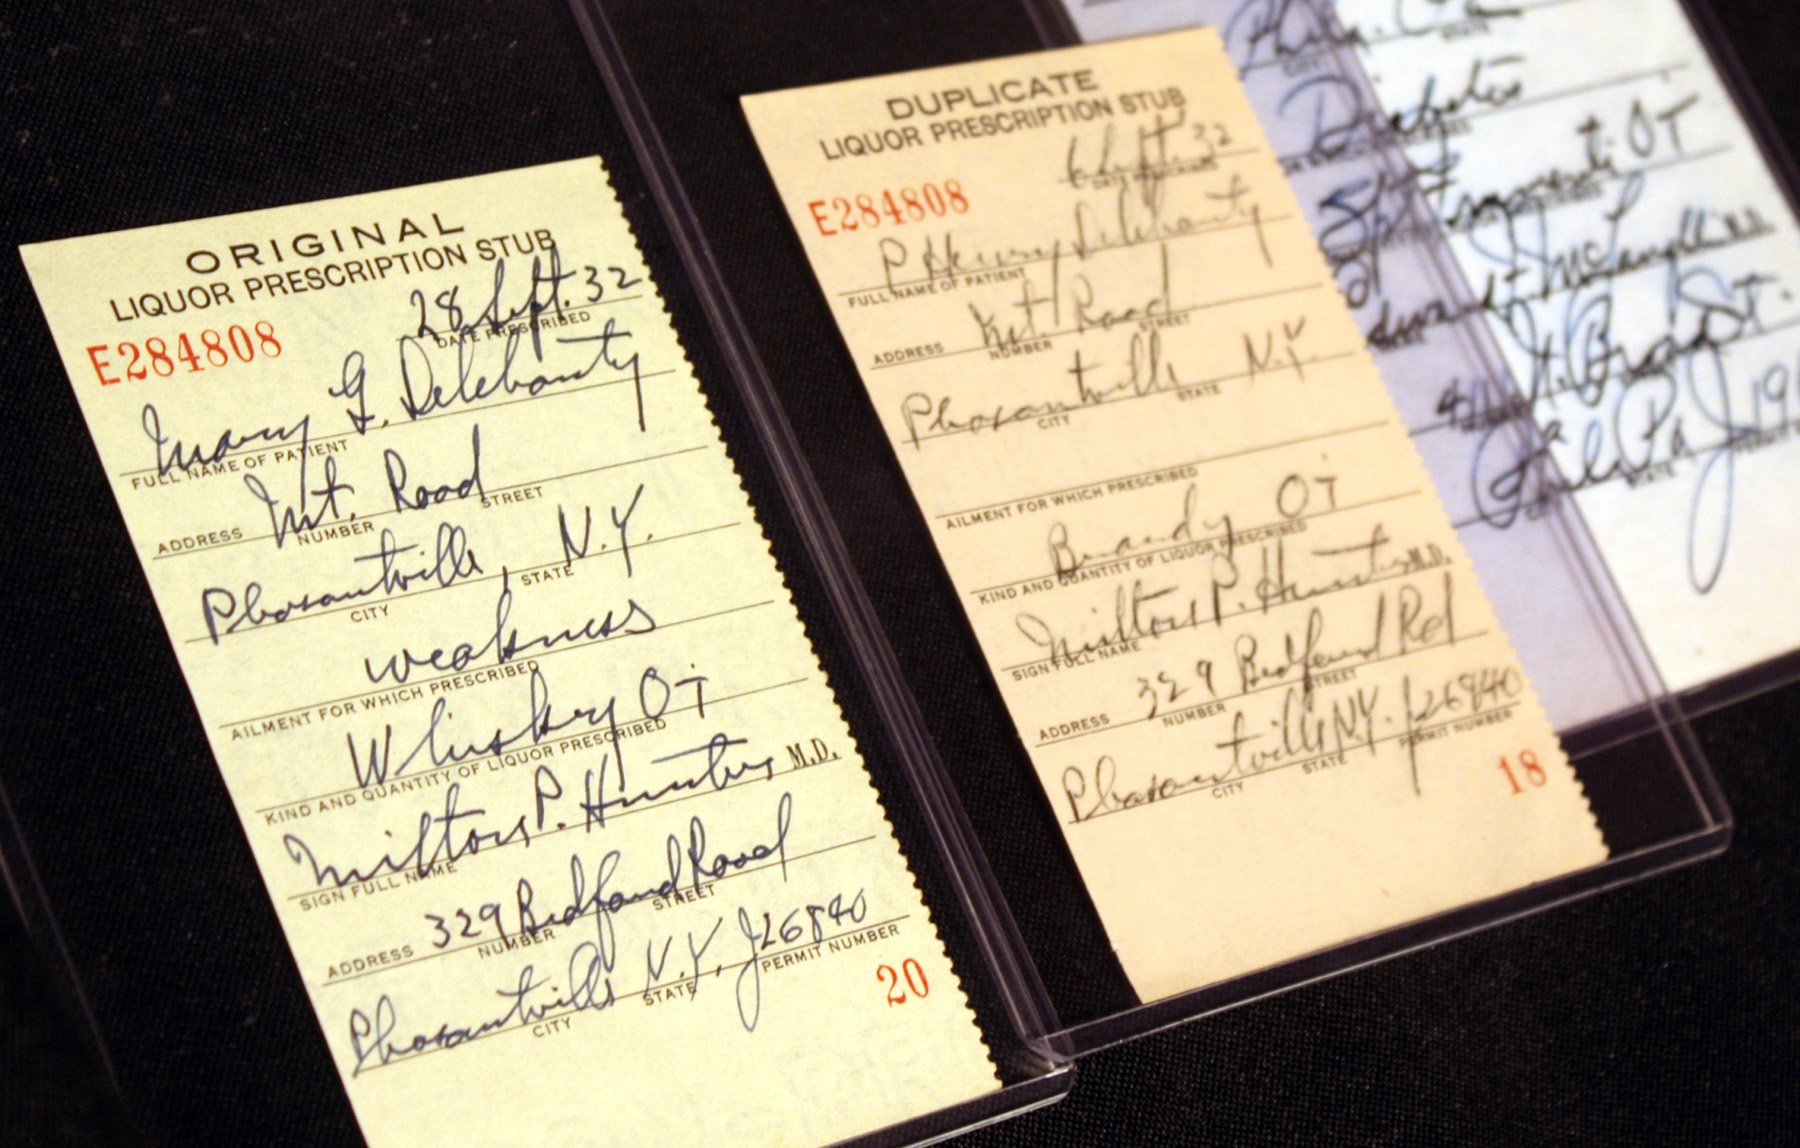 ORIGINAL
LIQUOR PRESCRIPTION STUB
E284808
28 Sept. 32
DATE PRESCRIBED
Mary G. Delehanty
FULL NAME OF PATIENT
Mt. Road
ADDRESS NUMBER STREET
Pleasantville, N.Y.
CITY STATE
weakness
AILMENT FOR WHICH PRESCRIBED
Whiskey OT
KIND AND QUANTITY OF LIQUOR PRESCRIBED
Milton P. Hunter M.D.
SIGN FULL NAME
329 Bedford Road
ADDRESS NUMBER STREET
Pleasantville N.Y. J26840
CITY STATE PERMIT NUMBER
20
DUPLICATE
LIQUOR PRESCRIPTION STUB
E284808
6 Sept 32
P Henry Delehanty
FULL NAME OF PATIENT
Mt Road
ADDRESS NUMBER STREET
Pleasantville N.Y.
CITY STATE
AILMENT FOR WHICH PRESCRIBED
Brandy OT
KIND AND QUANTITY OF LIQUOR PRESCRIBED
Milton P. Hunter M.D.
SIGN FULL NAME
329 Bedford Rd
ADDRESS NUMBER STREET
Pleasantville N.Y. J26840
CITY STATE PERMIT NUMBER
18
Phila. Pa
CITY STATE
Diabetes
OT
McLaughlin M.D.
Broad St.
Phila Pa
STATE PERMIT